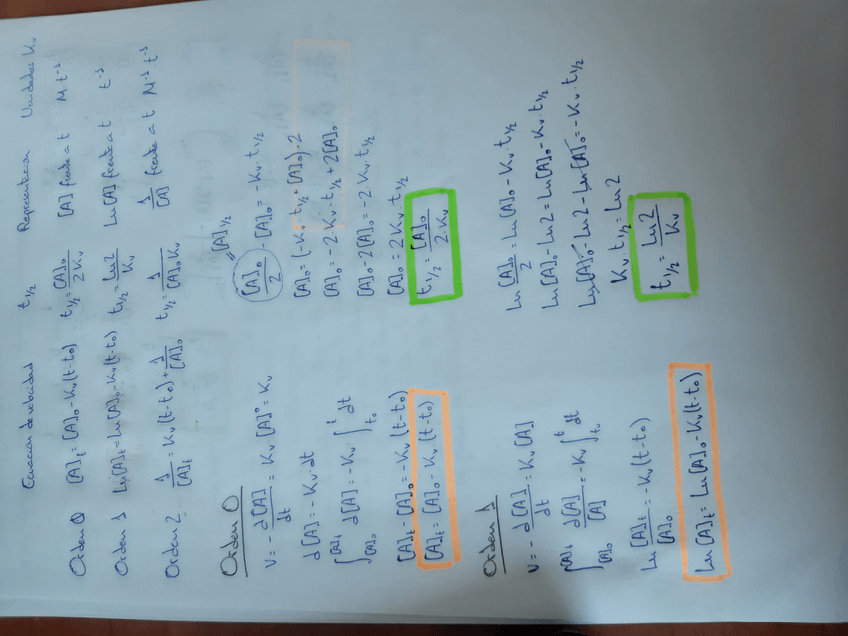 Ecuacion de velocidad t1/2 Representacion Unidades Kv
Orden 0 [A]t = [A]o - Kv(t-to) t1/2 = [A]o / 2Kv [A] frente a t M·t⁻¹
Orden 1 Ln[A]t = Ln[A]o - Kv(t-to) t1/2 = Ln2 / Kv Ln[A] frente a t t⁻¹
Orden 2 1/[A]t = Kv(t-to) + 1/[A]o t1/2 = 1 / [A]o Kv 1/[A] frente a t M⁻¹ t⁻¹
Orden 0
V = - d[A]/dt = Kv [A]⁰ = Kv
d[A] = -Kv·dt
∫[A]o^[A]t d[A] = -Kv ∫to^t dt
[A]t - [A]o = -Kv (t-to)
[A]t = [A]o - Kv (t-to)
[A]1/2
[A]o/2 - [A]o = -Kv·t1/2
[A]o = (-Kv·t1/2 + [A]o)·2
[A]o = -2Kv·t1/2 + 2[A]o
[A]o - 2[A]o = -2Kv·t1/2
[A]o = 2Kv·t1/2
t1/2 = [A]o / 2·Kv
Orden 1
V = - d[A]/dt = Kv [A]
∫[A]o^[A]t d[A]/[A] = -Kv ∫to^t dt
Ln [A]t/[A]o = -Kv(t-to)
Ln[A]t = Ln[A]o - Kv(t-to)
Ln [A]o/2 = Ln[A]o - Kv·t1/2
Ln[A]o - Ln2 = Ln[A]o - Kv·t1/2
Ln[A]o - Ln2 - Ln[A]o = -Kv·t1/2
Kv·t1/2 = Ln2
t1/2 = Ln2 / Kv